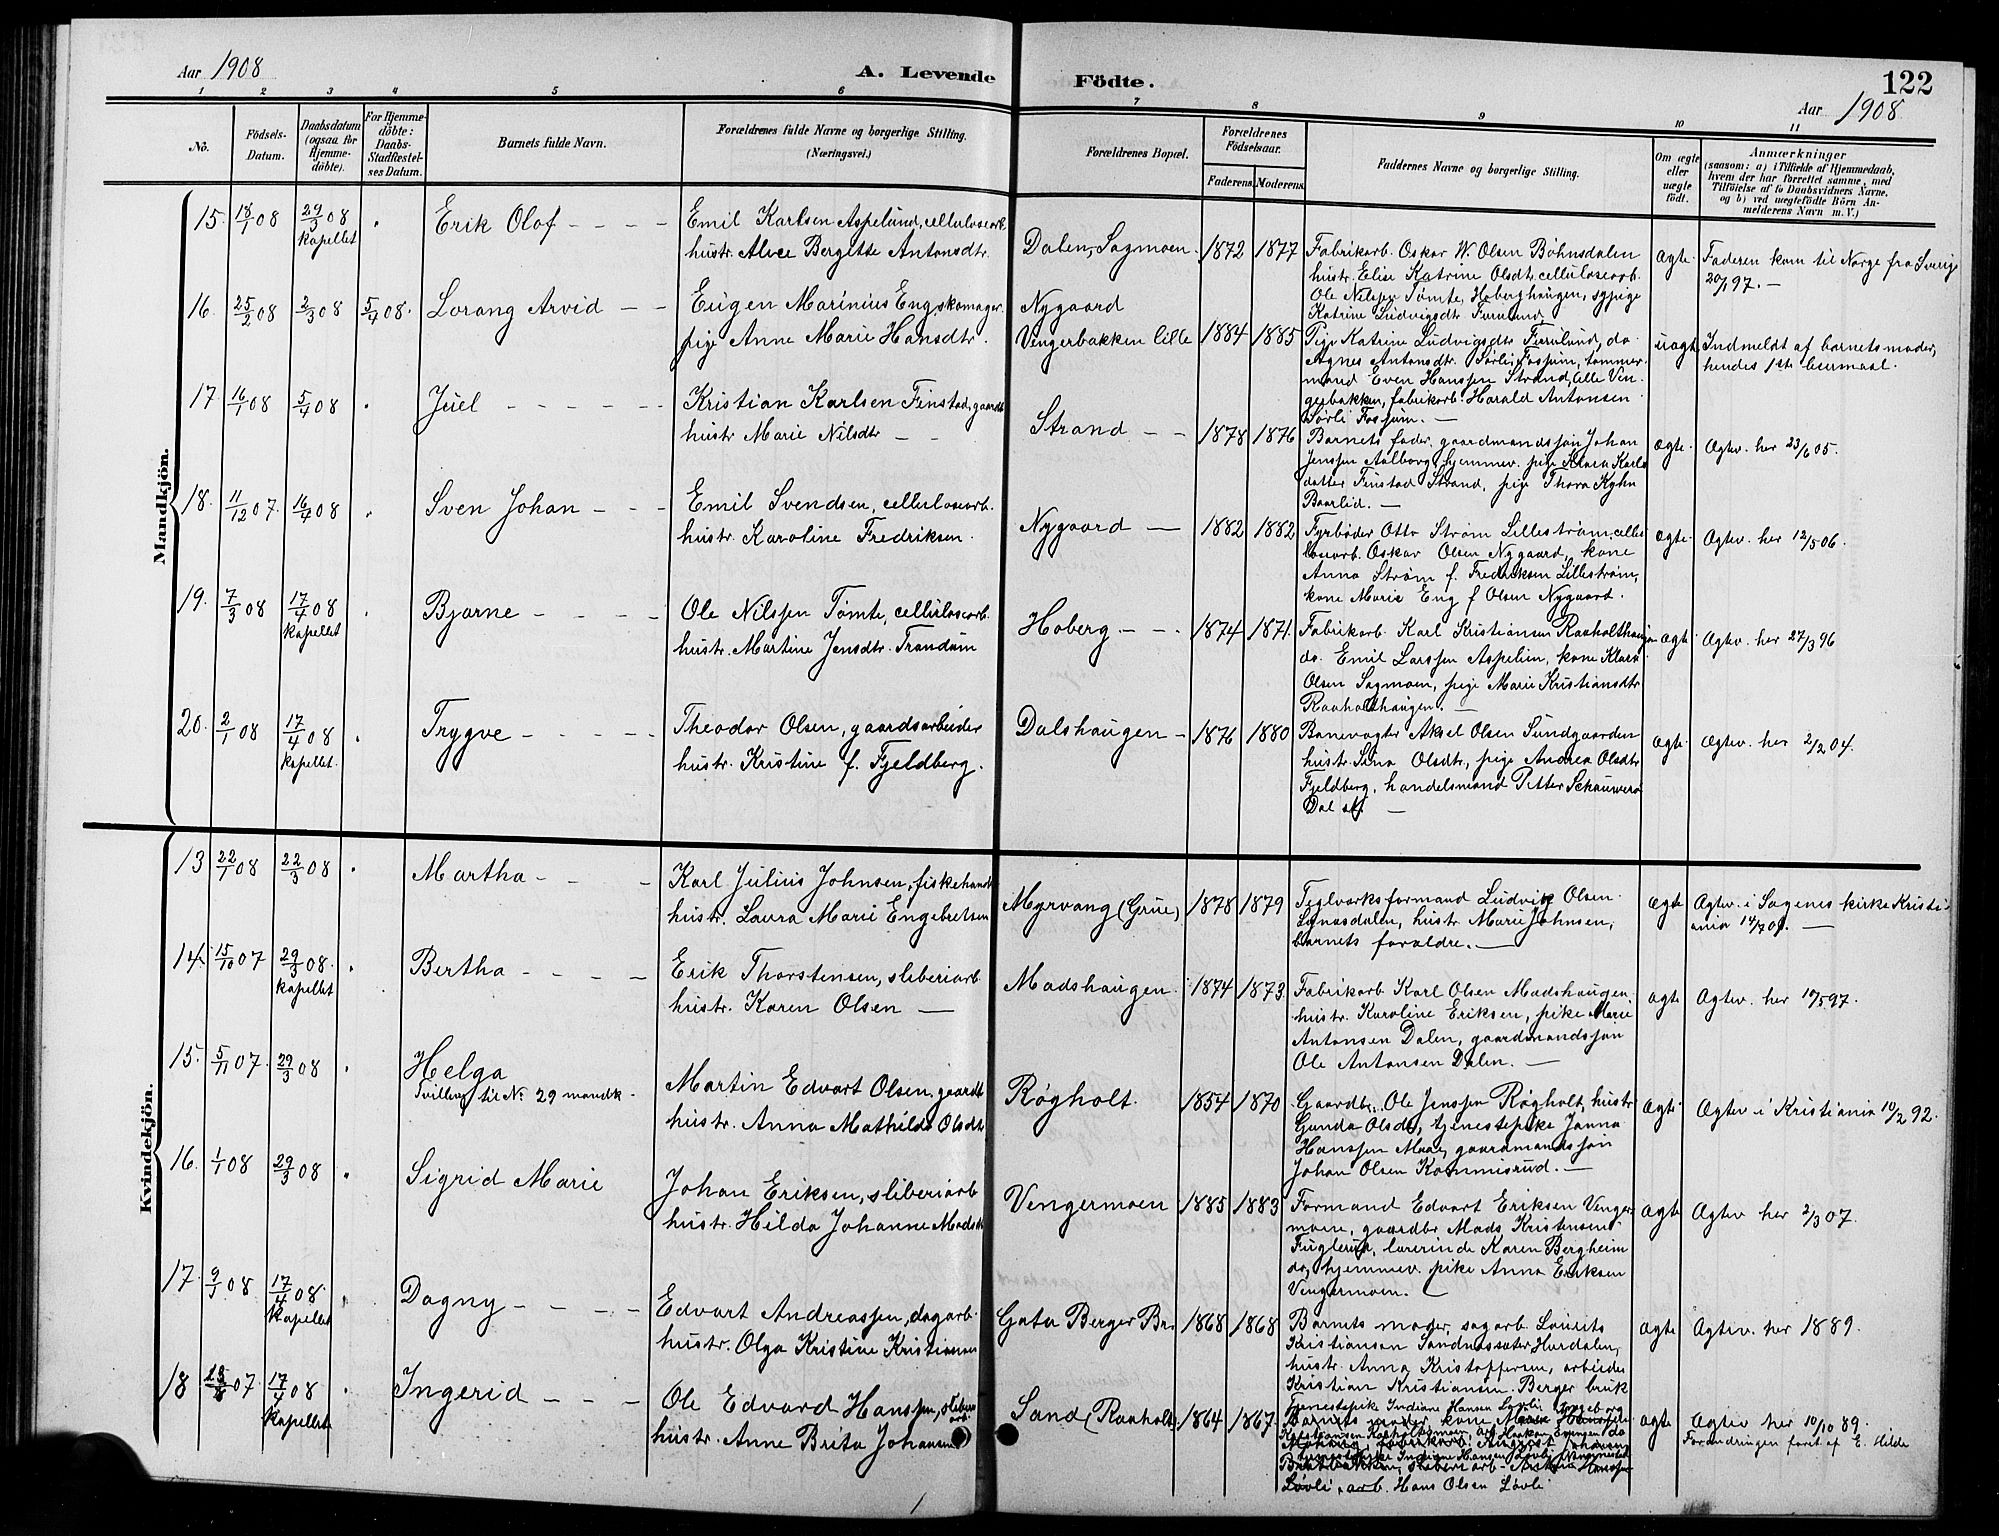 Aar 1908
A. Levende
Födte.
122
Aar 1908
1 2 3 4 5 6 7 8 9 10 11
No.
Födsels-
Datum.
Daabsdatum
(ogsaa for
Hjemme-
döbte).
For Hjemme-
döbte:
Daabs-
Stadfæstel-
ses Datum.
Barnets fulde Navn.
Forældrenes fulde Navne og borgerlige Stilling.
(Næringsvei.)
Forældrenes Bopæl.
Forældrenes
Födselsaar.
Faderens. Moderens.
Faddernes Navne og borgerlige Stilling.
Om ægte
eller
uægte
födt.
Anmærkninger
(saasom: a) i Tilfælde af Hjemmedaab,
hvem der har forrettet samme, med
Tilföielse af to Daabsvidners Navne,
og b) ved uægtefödte Börn An-
melderens Navn m. V.)
Mandkjön.
15. 18/1 08 29/3 08 kapellet
Erik Olof
Emil Karlsen Aspelund, cellulosearb.
hustr. Alvce Bergitte Antonsdtr.
Dalen, Sagmoen. 1872 1877
Fabrikarb. Oskar W. Olsen Böhnsdalen
hustr. Elise Katrine Olsdtr. cellulosearb.
Ole Nilssen Tömte, Hoberghaugen, sypige
Katrine Ludvigsdtr Furulund,
ægte. Faderen kom til Norge fra Sverige
20/1 97.
16. 25/2 08 2/3 08 5/4 08.
Lorang Arvid
Eugen Marinius Eng skomager
pige Anne Marie Hansdtr.
Nygaard
Vengerbakken lille 1884 1885
Pige Katrine Ludvigsdtr Furulund, do.
Agnes Antonsdtr. Sørli, Fossum, tømmer-
mand Even Hanssen Strand, lille Ven-
gerbakken, fabrikarb. Harald Antonsen
Sørli Fossum.
uægte Indmeldt af barnets moder,
hendes 1ste leiermaal.
17 16/1 08 5/4 08
Juel
Kristian Karlsen Finstad, gaardbr
hustr Marie Nilsdtr
Strand 1878 1876
Barnets fader, gaardmandssøn Johan
Jenssen Aalborg, hjemmev. pige Klara Karls
datter Finstad Strand, pige Thora Kyhn
Baarlid.
ægte. Ægtev. her 23/6 05.
18. 11/12 07. 16/4 08
Sven Johan
Emil Svendsen, cellulosearb.
hustr. Karoline Fredriksen.
Nygaard 1882 1882
Fyrbøder Otto Strøm Lillestrøm, cellu
losearb. Oskar Olsen Nygaard, kone
Anna Strøm f. Fredriksen Lillestrøm,
kone Marie Eng f Olsen Nygaard.
ægte. Ægtev. her 12/5 06.
19. 7/3 08 17/4 08 kapellet
Bjarne
Ole Nilssen Tømte, cellulosearb.
hustr. Martine Jensdtr. Trandum
Hoberg 1874 1871.
Fabrikarb. Karl Kristiansen Raaholthaugen
do. Emil Larssen Aspelien, kone Klara
Olsen Sagmoen, pige Marie Kristiansdtr
Raaholthaugen.
ægte Ægtev. her 27/3 96
20. 2/1 08 17/4 08 kapellet.
Trygve
Theodor Olsen, gaardsarbeider
hustr. Kristine f. Fjeldberg.
Dalshaugen 1876 1880
Banevogter Aksel Olsen Sundgaarden
hustr. Sina Olsdtr., pige Andrea Olsdtr
Fjeldberg, handelsmand Petter Schauwers
Dal st.
ægte. Ægtev. her 2/2 04.
Kvindekjön.
13 22/1 08 22/3 08
Martha
Karl Julius Johnsen, fiskehandl.
hustr. Laura Marie Engebretsen
Myrvang (Grue) 1878 1879
Teglverksformand Ludvig Olsen
Lynæsdalen, hustr Marie Johnsen,
barnets forældre.
ægte Ægtev. i Sagenes kirke Kristi-
ania
14. 15/10 07 29/3 08. kapellet
Bertha
Erik Thorstensen, sliberiarb
hustr. Karen Olsen
Madshaugen 1874 1873.
Fabrikarb. Karl Olsen Madshaugen
hustr. Karoline Eriksen, pike Marie
Antonsen Dalen, gaardmandssøn
Ole Antonsen Dalen.
ægte Ægtev. her
15. 5/11 07. 29/3 08
Helga
Tvilling til No 29 mandk.
Martin Edvart Olsen, gaardbr
hustr. Anna Mathilde Olsdtr
Røgholt. 1854 1870
Gaardbr. Ole Jenssen Røgholt, hustr
Gunda Olsdtr, tjenestepike Janna
Hanssen Maae, gaardmandssøn
Johan Olsen Kommisrud.
ægte Ægtev i Kristiania 10/2 92.
16. 1/1 08 29/3 08
Sigrid Marie
Johan Eriksen, sliberiarb
hustr. Hilda Johanne Madsdtr
Vengermoen 1885 1883
Formand Edvart Eriksen Venger-
moen, gaardbr Mads Kristensen
Fuglerud, lærerinde Karen Bergheim
do, hjemmev. pike Anna Eriksen
Vengermoen.
ægte Ægtev her 2/3 07.
17. 9/1 08 17/4 08. kapellet
Dagny
Edvart Andreassen, dagarb
hustr. Olga Kristine Kristiansen
Gata Berger Br. 1868 1868
Barnets moder, sagarb. Laurits
Kristiansen Sandnessæter Hurdalen,
hustr. Anna Kristoffersen, arbeider
Kristian Kristiansen Berger bruk
ægte Ægtev. her 1889.
18 07 17/4 08 kapellet
Ingerid
Ole Edvard Hanssen, sliberi
arb.
hustr. Anne Brita Johansen
Sand (Raaholt) 1864 1867.
Tjenestepike Indiane Hansen Løvli, Ingeborg
Barnets moder, kone
Løvli, arb. Hans Olsen Løvli
ægte Ægtev her 10/10 89.
Forandringen føret af E. Hilde